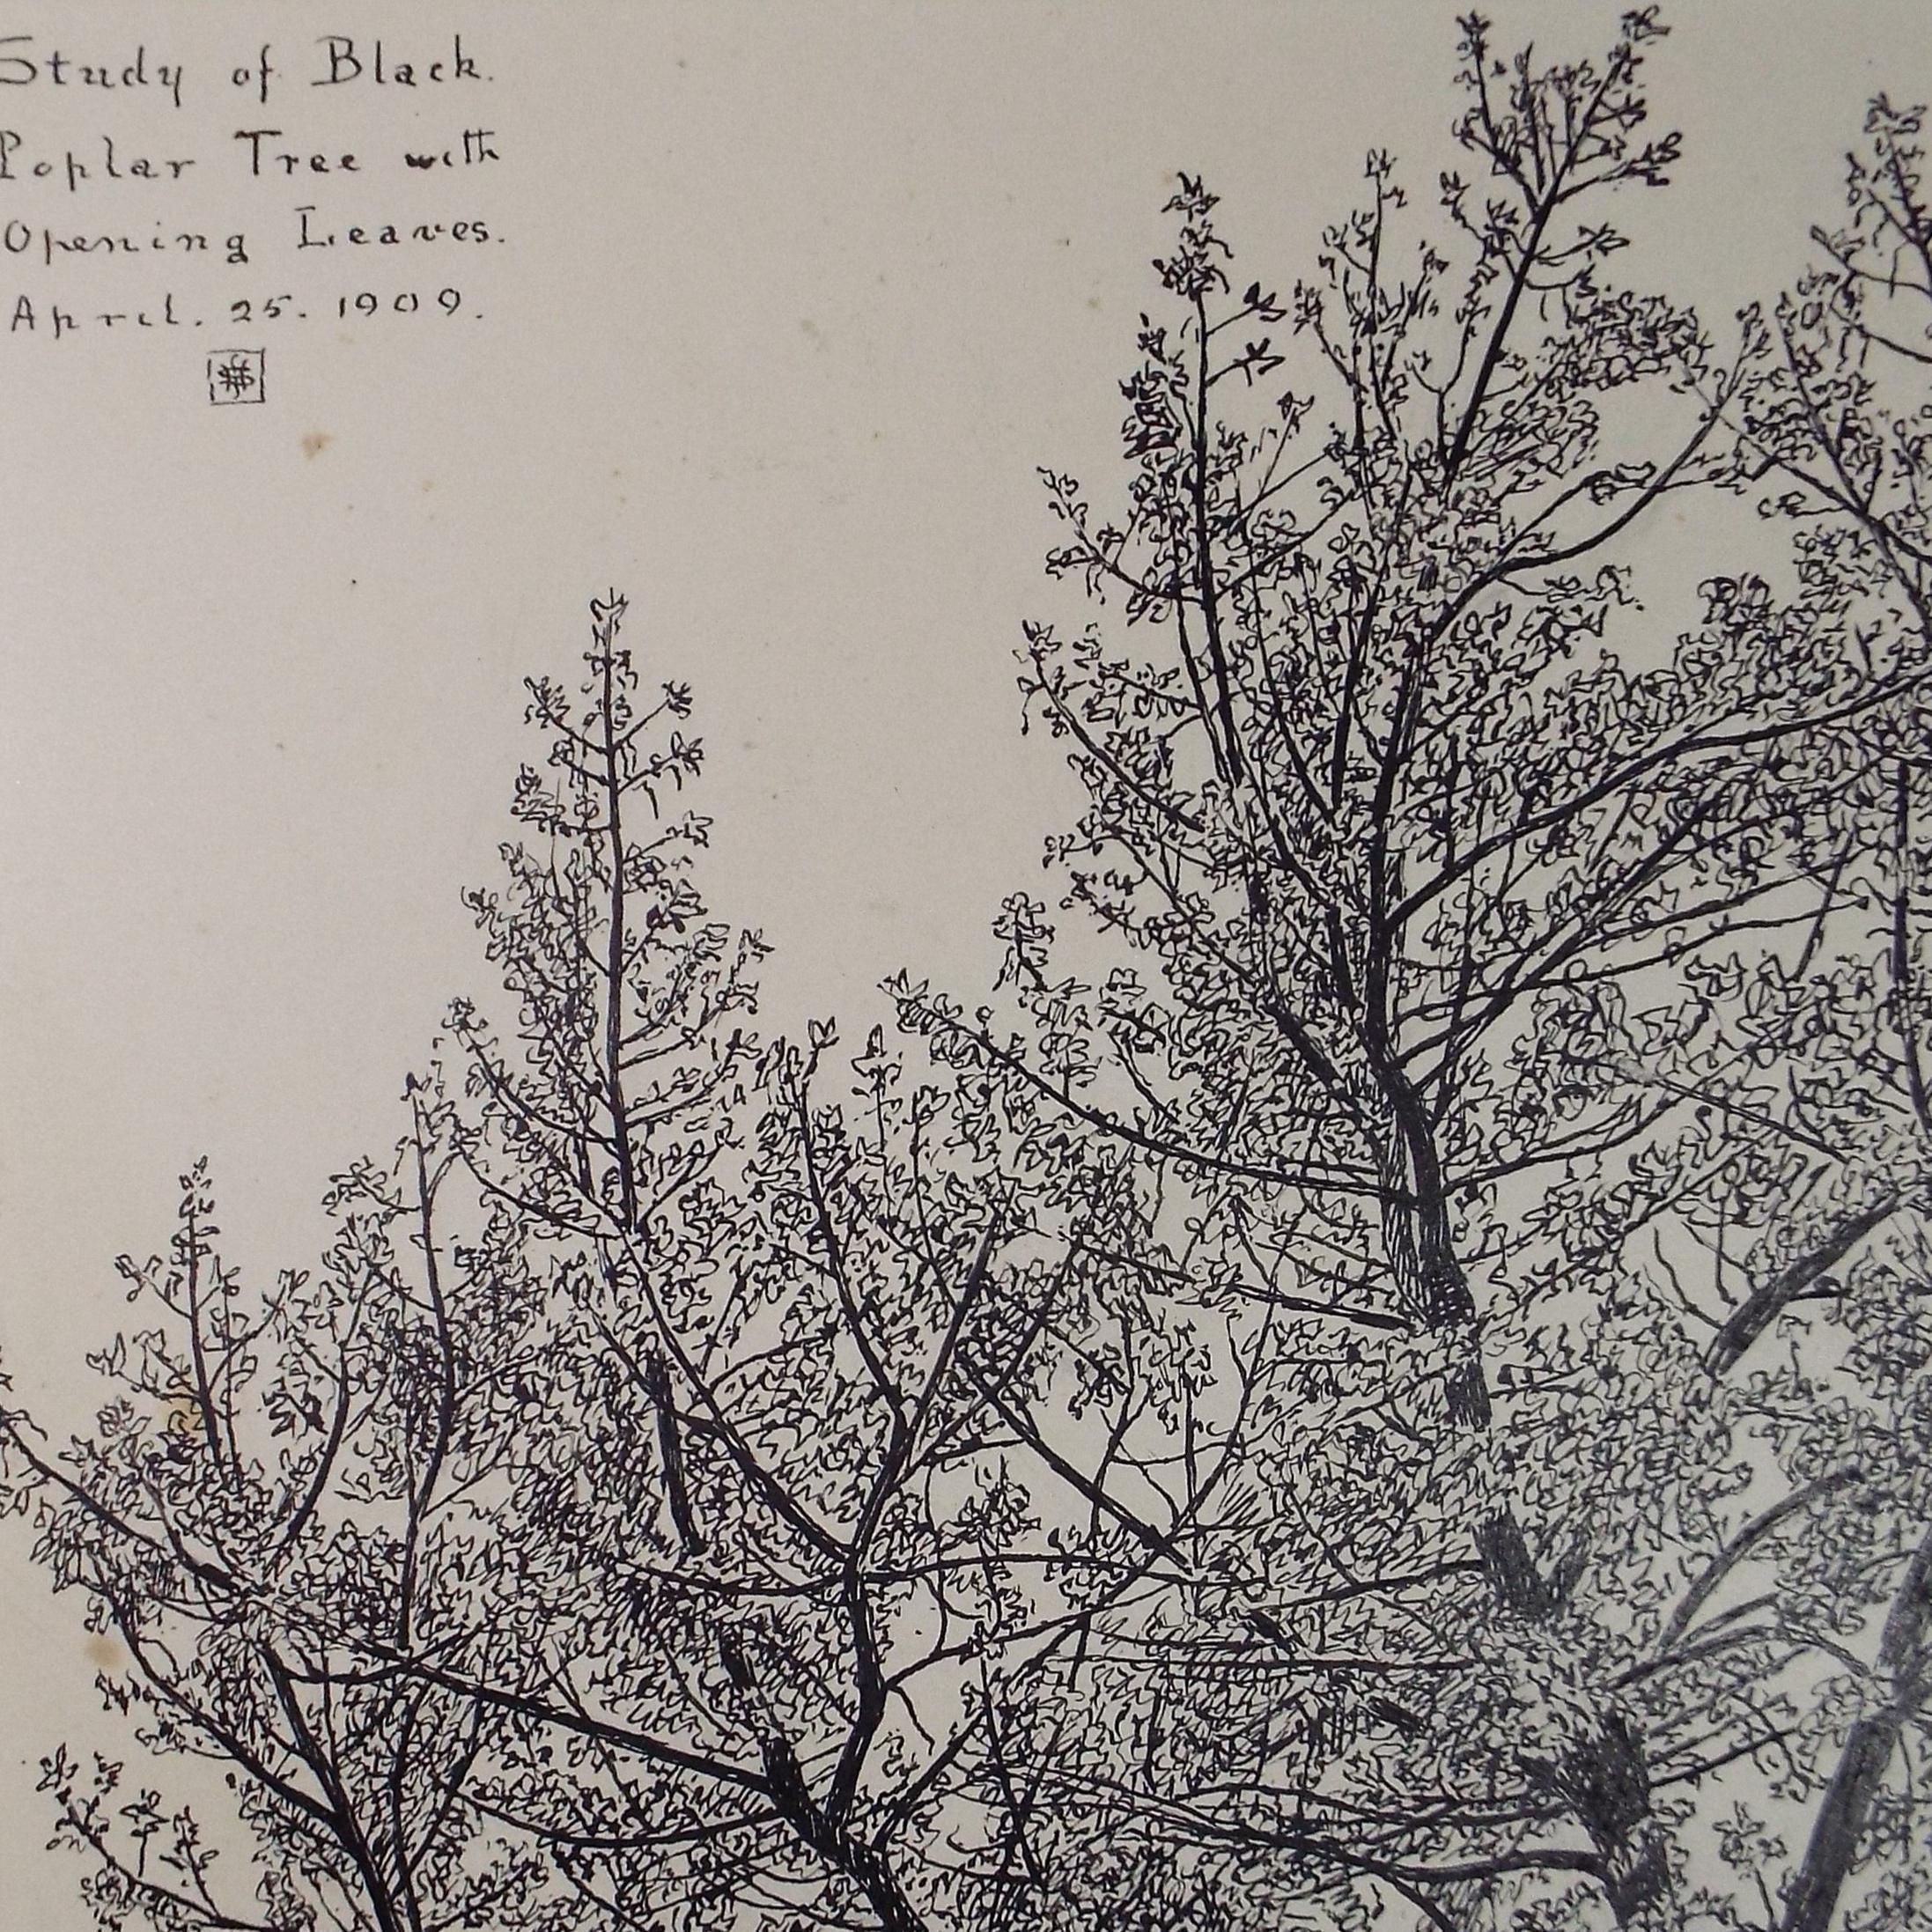 Study of Black.
Poplar Tree with
Opening Leaves.
April. 25. 1909.